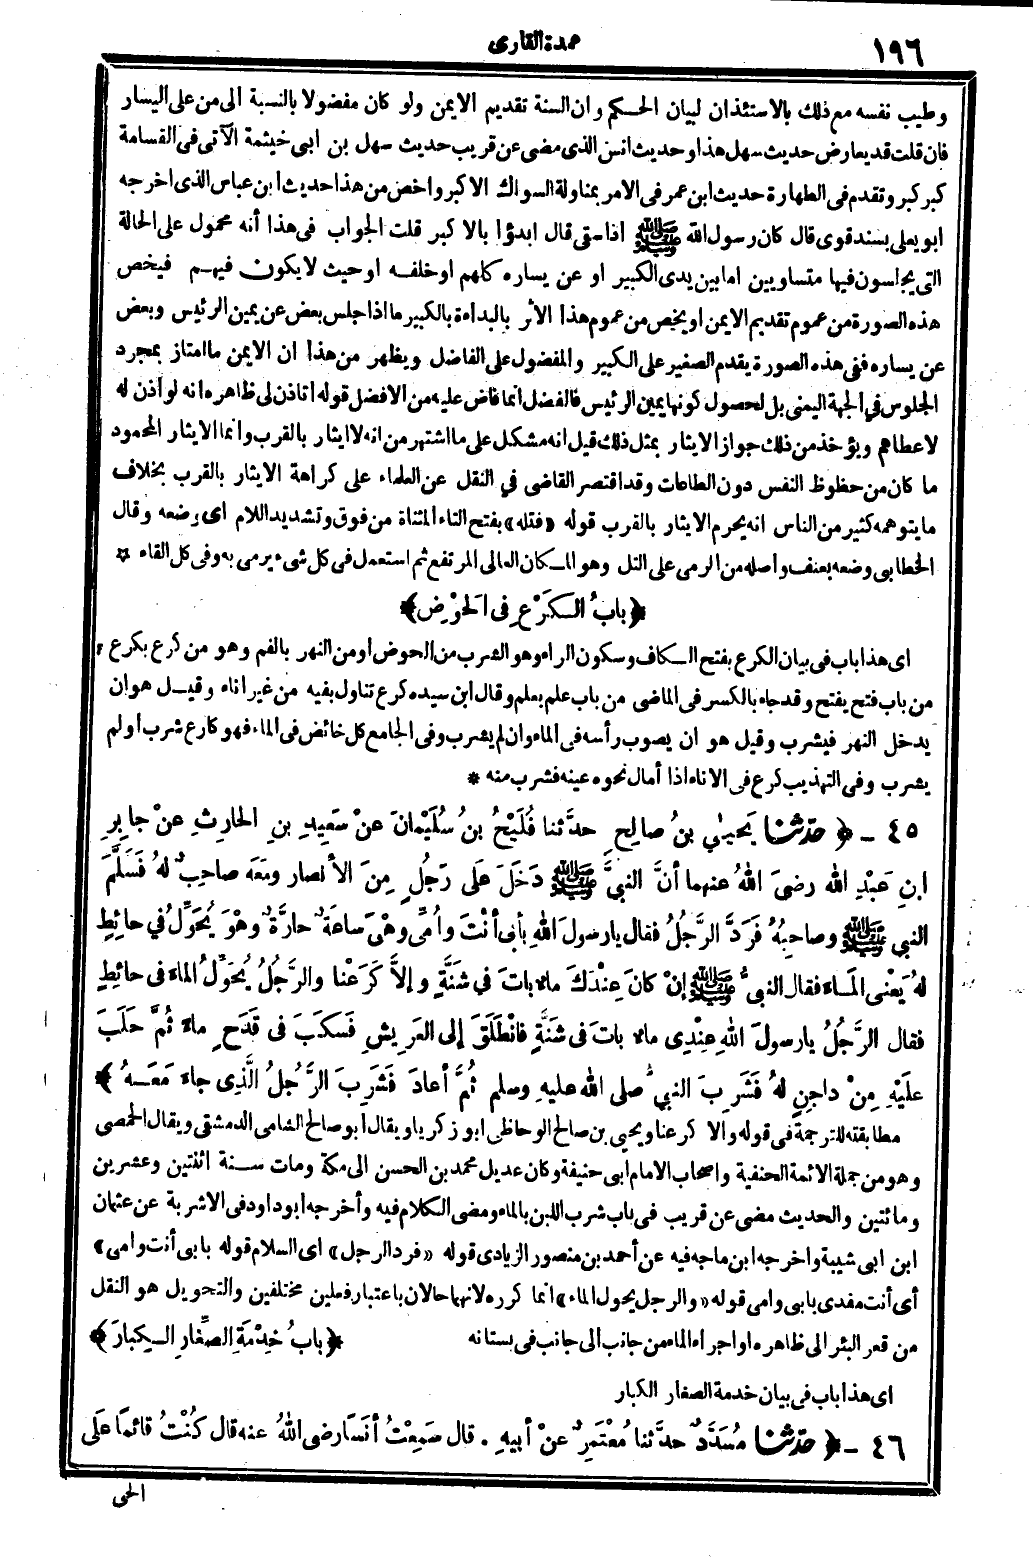 ١٩٦
عمدة القارى
وطيب نفسه مع ذلك بالاستئذان لبيان الحكم وان السنة تقديم الايمن ولو كان مفضولا بالنسبة الى من على اليسار
فان قلت قد يعارض حديث سهل هذا وحديث انس الذى مضى عن قريب حديث سهل بن ابى خيثمة الآتى فى القسامة
كبر كبر وتقدم فى الطهارة حديث ابن عمر فى الامر بمناولة السواك الاكبر واخص من هذا حديث ابن عباس الذى اخرجه
ابو يعلى بسند قوى قال كان رسول الله ﷺ اذا سقى قال ابدؤا بالاكبر قلت الجواب فى هذا أنه محمول على الحالة
التى يجلسون فيها متساويين اما بين يدى الكبير او عن يساره كلهم او خلفه او حيث لا يكون فيهم فيخص
هذه الصورة من عموم تقديم الايمن او يخص من عموم هذا الأثر بالبداءة بالكبير ما اذا جلس بعض عن يمين الرئيس وبعض
عن يساره ففى هذه الصورة يقدم الصغير على الكبير والمفضول على الفاضل ويظهر من هذا ان الايمن ما امتاز بمجرد
الجلوس في الجهة اليمنى بل لحصول كونها يمين الرئيس فالفضل انما فاض عليه من الافضل قوله اتاذن لى ظاهره انه لو اذن له
لاعطاهم ويؤخذ من ذلك جواز الايثار بمثل ذلك قيل انه مشكل على ما اشتهر من انه لا ايثار بالقرب وانما الايثار المحمود
ما كان من حظوظ النفس دون الطاعات وقد اقتصر القاضى في النقل عن العلماء على كراهة الايثار بالقرب بخلاف
ما يتوهمه كثير من الناس انه يحرم الايثار بالقرب قوله «فتله» بفتح التاء المثناة من فوق وتشديد اللام اى وضعه وقال
الخطابى وضعه بعنف وأصله من الرمى على التل وهو المكان العالى المرتفع ثم استعمل فى كل شىء يرمى به وفى كل القاء *
﴿بابُ الكَرْعِ فى الحَوْضِ﴾
اى هذا باب فى بيان الكرع بفتح الكاف وسكون الراء وهو الشرب من الحوض او من النهر بالفم وهو من كرع يكرع
من باب فتح يفتح وقد جاء بالكسر فى الماضى من باب علم يعلم وقال ابن سيده كرع تناول بفيه من غير اناء وقيل هو ان
يدخل النهر فيشرب وقيل هو ان يصوب رأسه فى الماء وان لم يشرب وفى الجامع كل خائض فى الماء فهو كارع شرب او لم
يشرب وفى التهذيب كرع فى الاناء اذا أمال نحوه عينه فشرب منه *
٤٥ - ﴿ حدّثنا يَحيىٰ بنُ صالِحٍ حدَّثنا فُلَيْحُ بنُ سُلَيْمَانَ عنْ سَعِيدِ بنِ الحارِثِ عنْ جابِرِ
ابنِ عَبْدِ الله رضىَ اللهُ عنهما أنَّ النبىَّ ﷺ دَخَلَ علَى رَجُلٍ مِنَ الأنصار ومَعَه صاحِبٌ لهُ فَسَلَّمَ
النبى ﷺ وصاحِبُهُ فَرَدَّ الرَّجُلُ فقال يارسولَ اللهِ بأبى أنْتَ وأُمِّى وهْىَ ساعَةٌ حارَّةٌ وهْوَ يُحَوِّلُ في حائِطٍ
لهُ يَعْنى المَاءَ فقال النبىُّ ﷺ إنْ كانَ عِنْدَكَ ماءٌ باتَ في شَنَّةٍ وإلاَّ كَرَعْنا والرَّجُلُ يُحَوِّلُ الماءَ فى حائِطٍ
فقال الرَّجُلُ يارسولَ اللهِ عِنْدِى ماءٌ باتَ فى شَنَّةٍ فانْطَلَقَ إلى العَرِيشِ فَسكَبَ فى قَدَحٍ ماءً ثُمَّ حَلَبَ
علَيْهِ مِنْ داجِنٍ لهُ فَشَرِبَ النبىُّ صلى الله عليهِ وسلم ثُمَّ أعادَ فَشَرِبَ الرَّجُلُ الَّذِى جاءَ مَعَهُ ﴾
مطابقته للترجمة فى قوله والا كرعنا ويحيى بن صالح الوحاظى ابو زكريا ويقال أبو صالح الشامى الدمشقى ويقال الحمصى
وهو من جملة الائمة الحنفية واصحاب الامام ابى حنيفة وكان عديل محمد بن الحسن الى مكة ومات سنة اثنتين وعشرين
ومائتين والحديث مضى عن قريب فى باب شرب اللبن بالماء ومضى الكلام فيه وأخرجه ابو داود فى الاشربة عن عثمان
ابن ابى شيبة واخرجه ابن ماجه فيه عن أحمد بن منصور الزيادى قوله «فرد الرجل» اى السلام قوله بابى أنت وامى»
أى أنت مفدى بابى وامى قوله «والرجل يحول الماء» انما كرره لانهما حالان باعتبار فعلين مختلفين والتحويل هو النقل
من قعر البئر الى ظاهره او اجراء الماء من جانب الى جانب فى بستانه
﴿بابُ خِدْمَةِ الصِّغارِ الكِبارَ﴾
اى هذا باب فى بيان خدمة الصغار الكبار
٤٦ - ﴿ حدّثنا مُسَدَّدٌ حدَّثنا مُعْتَمِرٌ عنْ أبيهِ . قال سَمِعْتُ أنَسًا رضى اللهُ عنه قال كُنْتُ قائمًا علَى
الحى